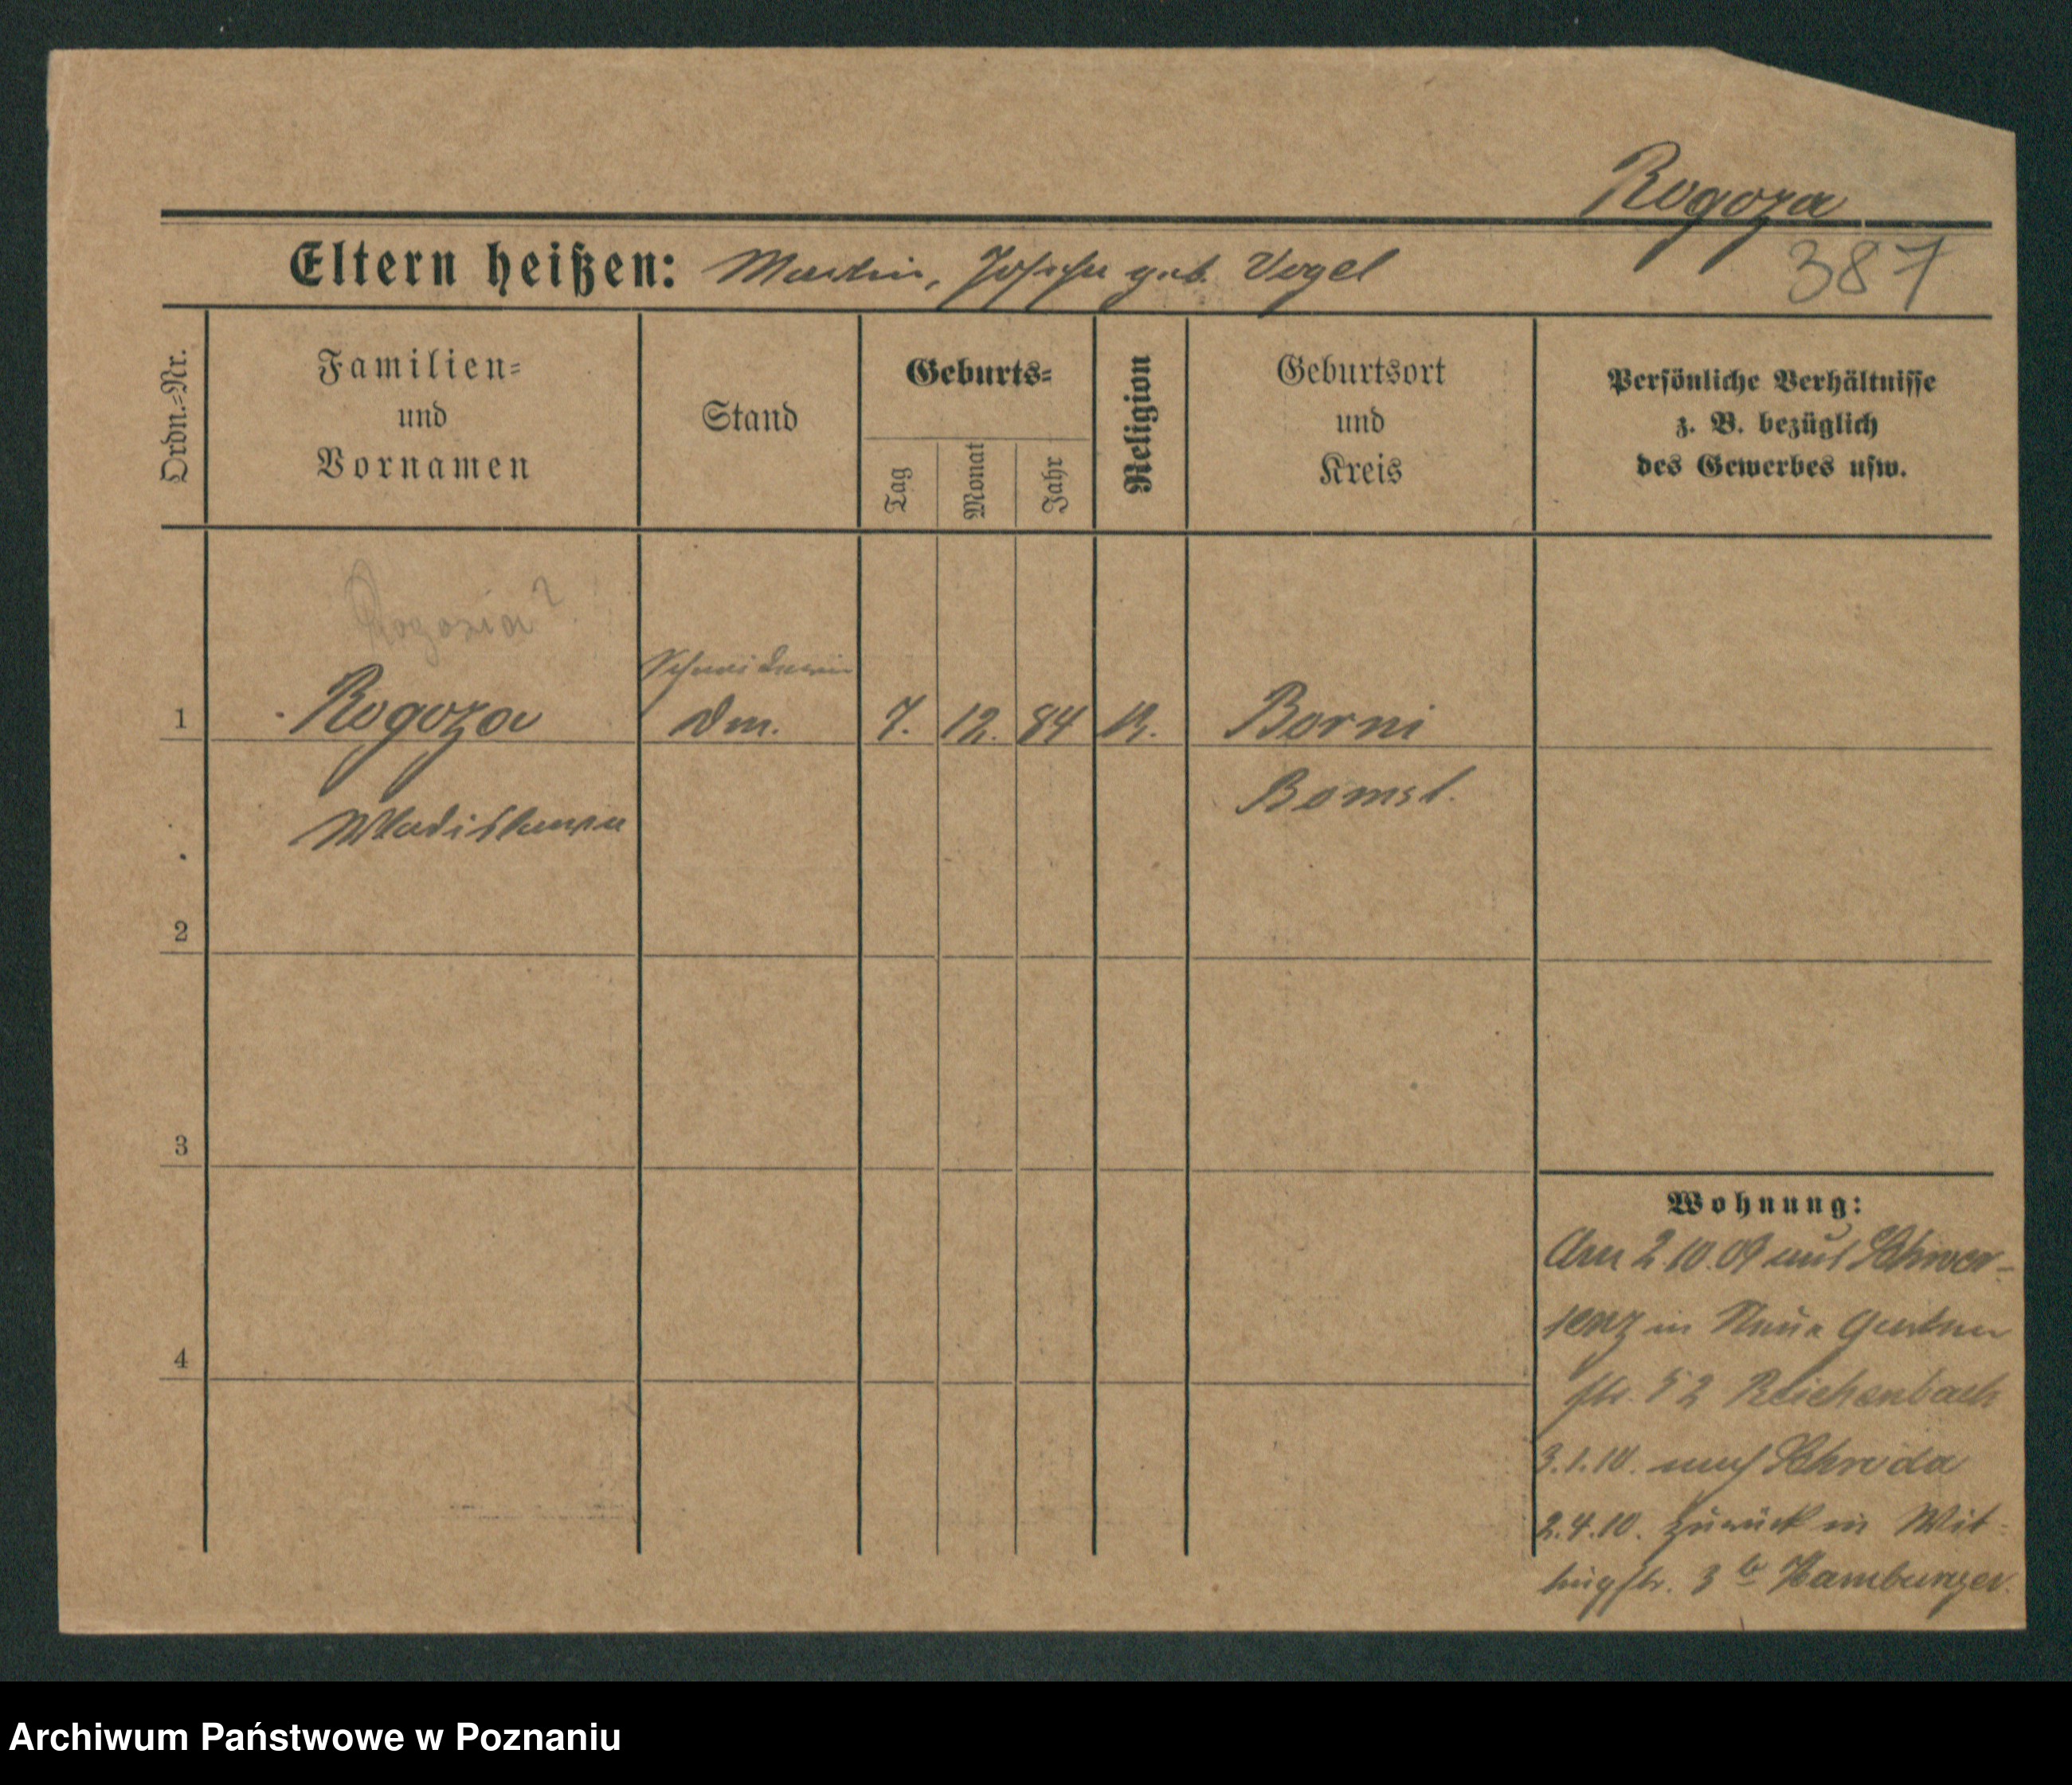 Rogoza
387
Eltern heißen: Martin, Josefa geb. Vogel
Ordn.=Nr.
Familien=
und
Vornamen
Stand
Geburts=
Tag
Monat
Jahr
Religion
Geburtsort
und
Kreis
Persönliche Verhältnisse
z. B. bezüglich
des Gewerbes usw.
Rogozia?
Schneiderin
1 Rogoza Dm. 7. 12. 84 K. Borni
Wladislawa Bomst.
2
3
4
Wohnung:
Am 2.10.09 aus Schwer-
senz in Neue Garten
str. 52 Reichenbach
3.1.10. nach Schroda
2.4.10. zurück in Wit-
tingstr. 3 b Hamburger
Archiwum Państwowe w Poznaniu